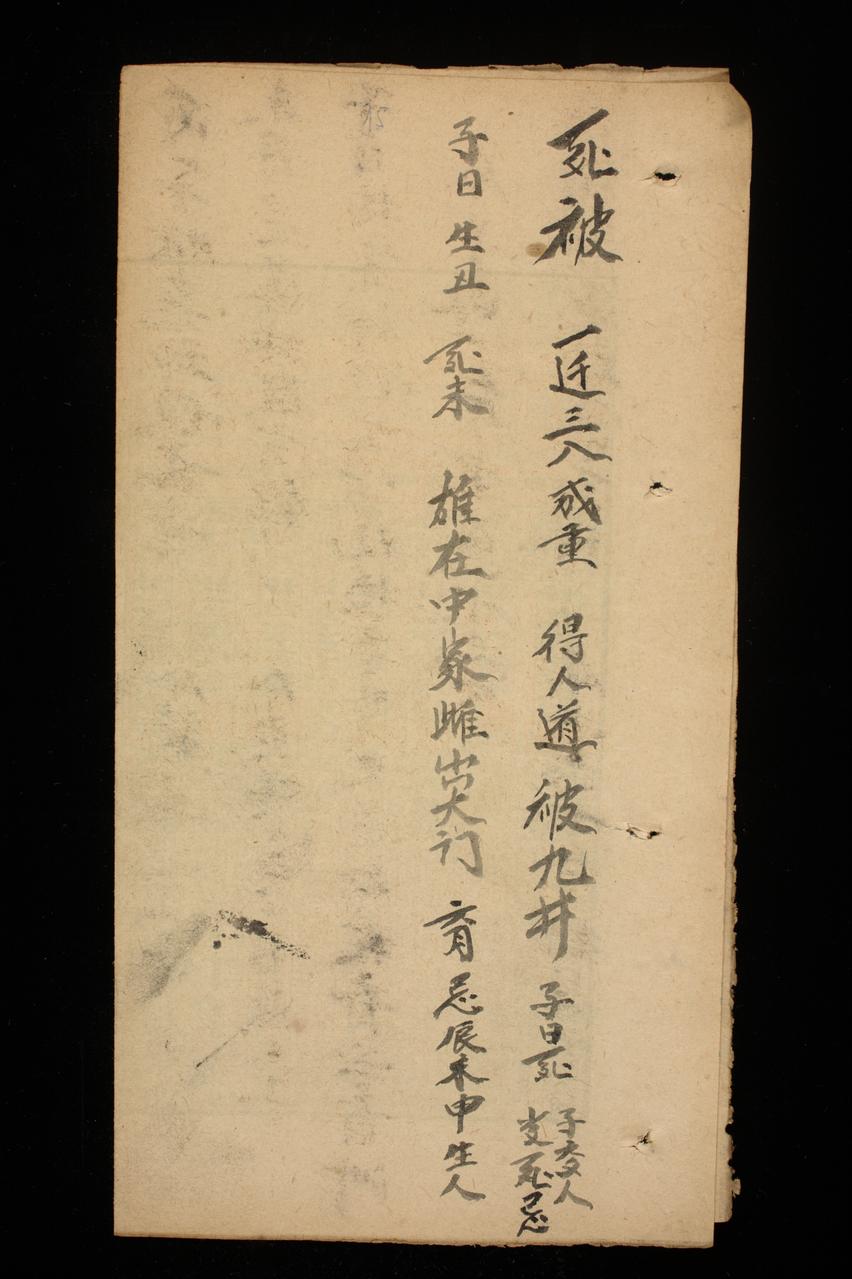 死被 一迁三八成重 得人道 被九井 子日死 子亥人支死忌
子日 生丑 死未 雄在中家雌出大门 育 忌辰未申生人